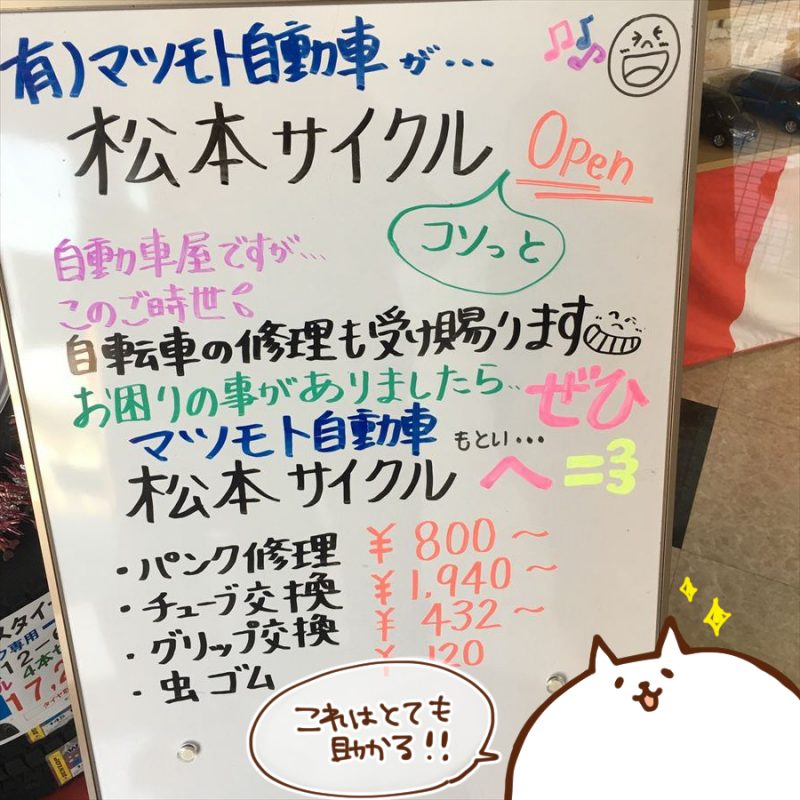 有)マツモト自動車が・・・
松本サイクル Open
コソっと
自動車屋ですが・・・
このご時世!
自転車の修理も受け賜ります
お困りの事がありましたら・・ぜひ
マツモト自動車 もとい・・・
松本サイクルへ
・パンク修理 ¥800〜
・チューブ交換 ¥1,940〜
・グリップ交換 ¥432〜
・虫ゴム ¥120
これはとても
助かる!!
スタイ
専用
12-
4本
17,2